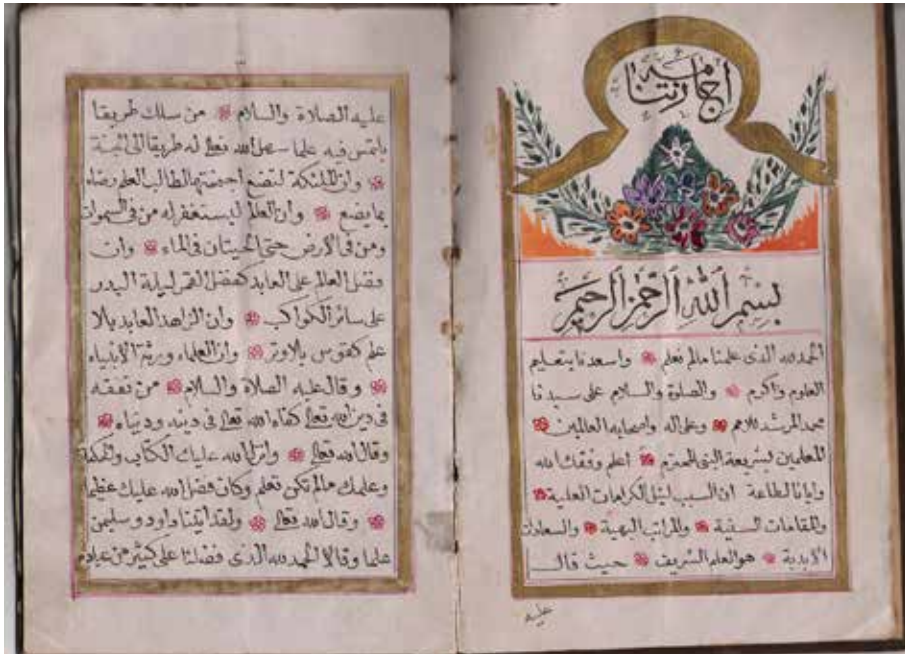 اجازتنامه
بسم الله الرحمن الرحيم
الحمد لله الذى علمنا مالم نعلم واسعدنا بتعليم
العلوم واكرم والصلوة والسلام على سيدنا
محمد المرشد للامم وعلى اله واصحابه العالمين
المعلمين لشريعة النبى المحترم اعلم وفقك الله
وايانا لطاعة ان السبب لنيل الكرامات العلية
والمقامات السنية والمراتب البهية والسعادت
الابدية هو العلم الشريف حيث قال
عليه
عليه الصلاة والسلام من سلك طريقا
يلتمس فيه علما سهل الله تعالى له طريقا الى الجنة
وان الملئكة لتضع اجنحتها لطالب العلم رضاء
بما يضع وان العالم ليستغفر له من فى السموات
ومن فى الارض حتى الحيتان فى الماء وان
فضل العالم على العابد كفضل القمر ليلة البدر
على سائر الكواكب وان الزاهد العابد بلا
علم كقوس بلا وتر وان العلماء ورثة الانبياء
وقال عليه الصلاة والسلام من تفقه
فى دين الله تعالى كفاه الله تعالى فى دينه ودنياه
وقال الله تعالى وانزل الله عليك الكتاب والحكمة
وعلمك مالم تكن تعلم وكان فضل الله عليك عظيما
وقال الله تعالى ولقد اتينا داود وسليمن
علما وقالا الحمد لله الذى فضلنا على كثير من عباده